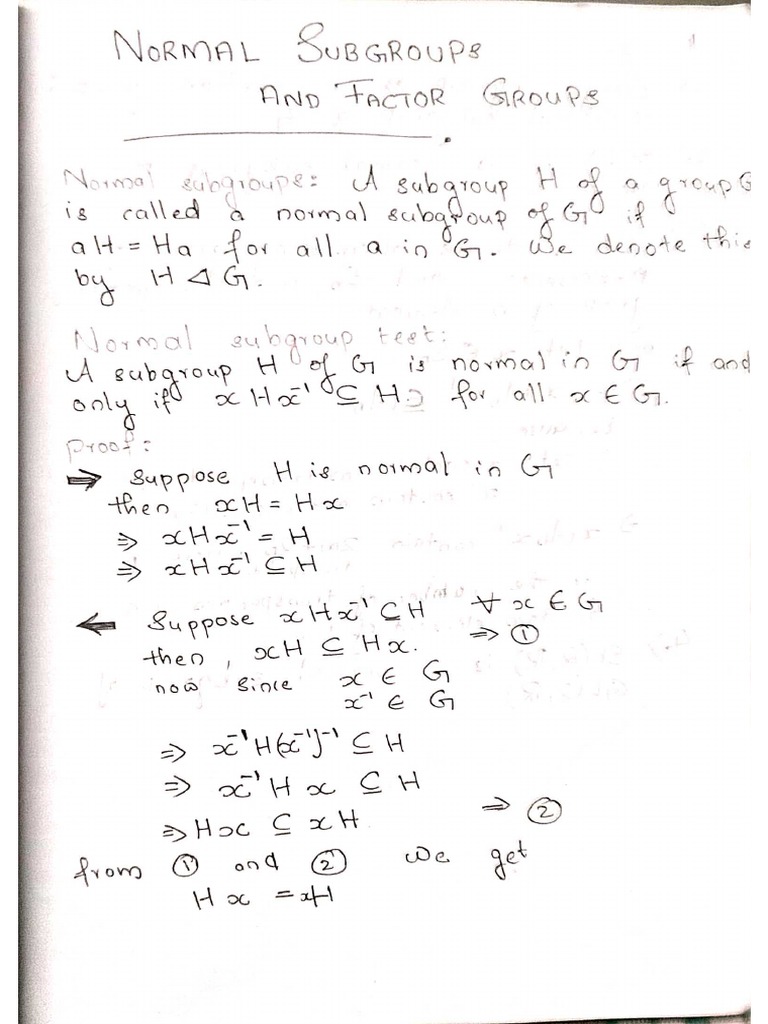 NORMAL SUBGROUPS
AND FACTOR GROUPS
Normal subgroups: A subgroup H of a group G
is called a normal subgroup of G if
aH = Ha for all a in G. We denote this
by H ⊲ G.
Normal subgroup test:
A subgroup H of G is normal in G if and
only if xHx⁻¹ ⊆ H for all x ∈ G.
Proof:
⇒ Suppose H is normal in G
then xH = Hx
⇒ xHx⁻¹ = H
⇒ xHx⁻¹ ⊆ H
← Suppose xHx⁻¹ ⊆ H ∀ x ∈ G
then, xH ⊆ Hx. ⇒ ①
now since x ∈ G
x⁻¹ ∈ G
⇒ x⁻¹H(x⁻¹)⁻¹ ⊆ H
⇒ x⁻¹Hx ⊆ H
⇒ Hx ⊆ xH ⇒ ②
from ① and ② we get
Hx = xH